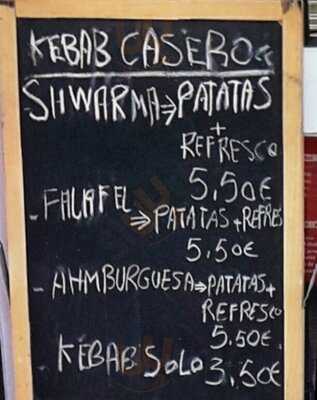 KEBAB CASERO
SHWARMA⇒PATATAS
+
REFRESCO
5,50€
- FALAFEL
⇒PATATAS+REFRES
5,50€
- AHMBURGUESA⇒PATATAS+
REFRESCO
5.50€
KEBAB SOLO 3,50€